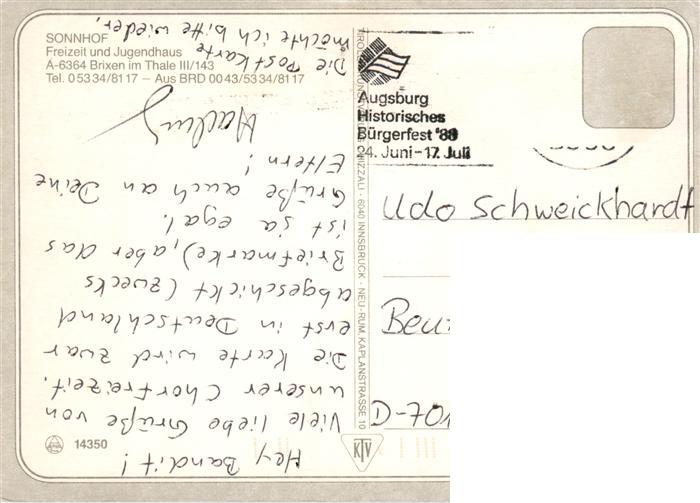 SONNHOF
Freizeit und Jugendhaus
A-6364 Brixen im Thale III/143
Tel. 0 53 34/81 17 – Aus BRD 00 43/53 34/81 17
Hey Bandit!
Viele liebe Grüße von
unserer Chorfreizeit.
Die Karte wird zwar
erst in Deutschland
abgeschickt (zwecks
Briefmarke), aber das
ist ja egal.
Grüße auch an Deine
Eltern!
Die Postkarte
möchte ich bitte wieder,
Augsburg
Historisches
Bürgerfest '88
24. Juni-17. Juli
6040 INNSBRUCK - NEU-RUM, KAPLANSTRASSE 10
KTV
Udo Schweickhardt
D-701
14350